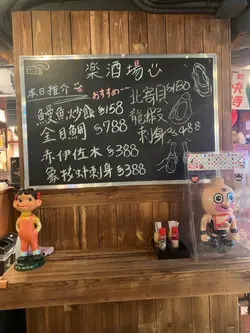 楽酒場
本日推介 おすすめ
鰻魚炒飯 $158
金目鯛 $788
乔伊佐木 $388
象拔蚌刺身 $388
北寄貝 $180
龍蝦
刺身 $488